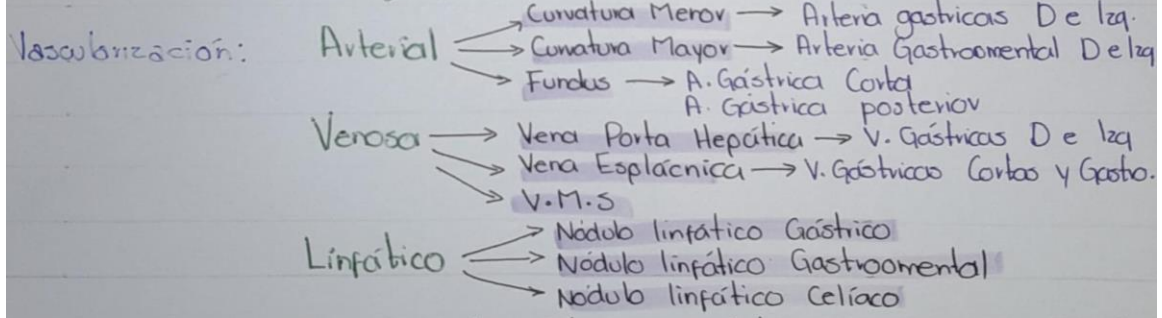 Vascularización: Arterial → Curvatura Menor → Arteria gastricas D e Izq.
→ Curvatura Mayor → Arteria Gastroomental D e Izq
→ Fundus → A. Gástrica Corta
A. Gástrica posterior
Venosa → Vena Porta Hepática → V. Gástricas D e Izq
→ Vena Esplácnica → V. Gástricas Cortas y Gastro.
→ V.M.S
Linfático → Nódulo linfático Gástrico
→ Nódulo linfático Gastroomental
→ Nódulo linfático Celíaco